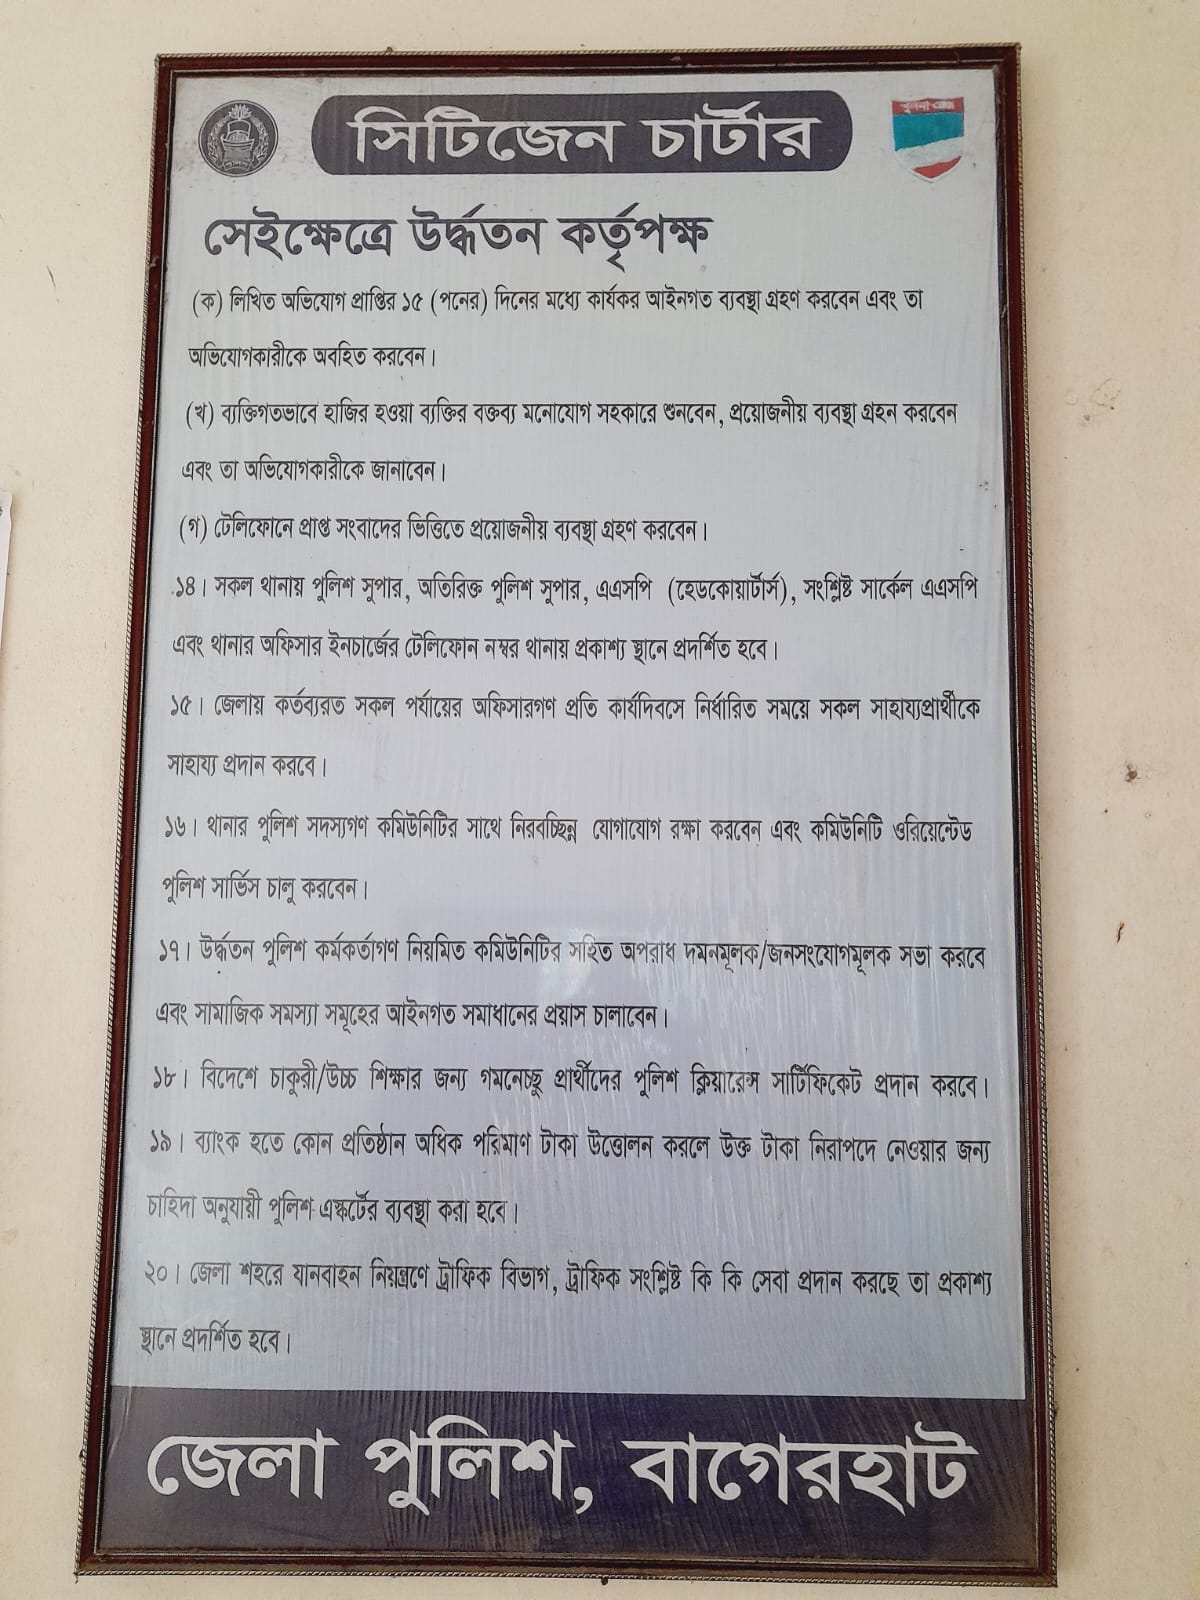 সিটিজেন চার্টার
খুলনা রেঞ্জ
পুলিশ
সেইক্ষেত্রে উর্দ্ধতন কর্তৃপক্ষ
(ক) লিখিত অভিযোগ প্রাপ্তির ১৫ (পনের) দিনের মধ্যে কার্যকর আইনগত ব্যবস্থা গ্রহণ করবেন এবং তা
অভিযোগকারীকে অবহিত করবেন।
(খ) ব্যক্তিগতভাবে হাজির হওয়া ব্যক্তির বক্তব্য মনোযোগ সহকারে শুনবেন, প্রয়োজনীয় ব্যবস্থা গ্রহন করবেন
এবং তা অভিযোগকারীকে জানাবেন।
(গ) টেলিফোনে প্রাপ্ত সংবাদের ভিত্তিতে প্রয়োজনীয় ব্যবস্থা গ্রহণ করবেন।
১৪। সকল থানায় পুলিশ সুপার, অতিরিক্ত পুলিশ সুপার, এএসপি (হেডকোয়ার্টার্স), সংশ্লিষ্ট সার্কেল এএসপি
এবং থানার অফিসার ইনচার্জের টেলিফোন নম্বর থানায় প্রকাশ্য স্থানে প্রদর্শিত হবে।
১৫। জেলায় কর্তব্যরত সকল পর্যায়ের অফিসারগণ প্রতি কার্যদিবসে নির্ধারিত সময়ে সকল সাহায্যপ্রার্থীকে
সাহায্য প্রদান করবে।
১৬। থানার পুলিশ সদস্যগণ কমিউনিটির সাথে নিরবচ্ছিন্ন যোগাযোগ রক্ষা করবেন এবং কমিউনিটি ওরিয়েন্টেড
পুলিশ সার্ভিস চালু করবেন।
১৭। উর্দ্ধতন পুলিশ কর্মকর্তাগণ নিয়মিত কমিউনিটির সহিত অপরাধ দমনমূলক/জনসংযোগমূলক সভা করবে
এবং সামাজিক সমস্যা সমূহের আইনগত সমাধানের প্রয়াস চালাবেন।
১৮। বিদেশে চাকুরী/উচ্চ শিক্ষার জন্য গমনেচ্ছু প্রার্থীদের পুলিশ ক্লিয়ারেন্স সার্টিফিকেট প্রদান করবে।
১৯। ব্যাংক হতে কোন প্রতিষ্ঠান অধিক পরিমাণ টাকা উত্তোলন করলে উক্ত টাকা নিরাপদে নেওয়ার জন্য
চাহিদা অনুযায়ী পুলিশ এস্কর্টের ব্যবস্থা করা হবে।
২০। জেলা শহরে যানবাহন নিয়ন্ত্রণে ট্রাফিক বিভাগ, ট্রাফিক সংশ্লিষ্ট কি কি সেবা প্রদান করছে তা প্রকাশ্য
স্থানে প্রদর্শিত হবে।
জেলা পুলিশ, বাগেরহাট